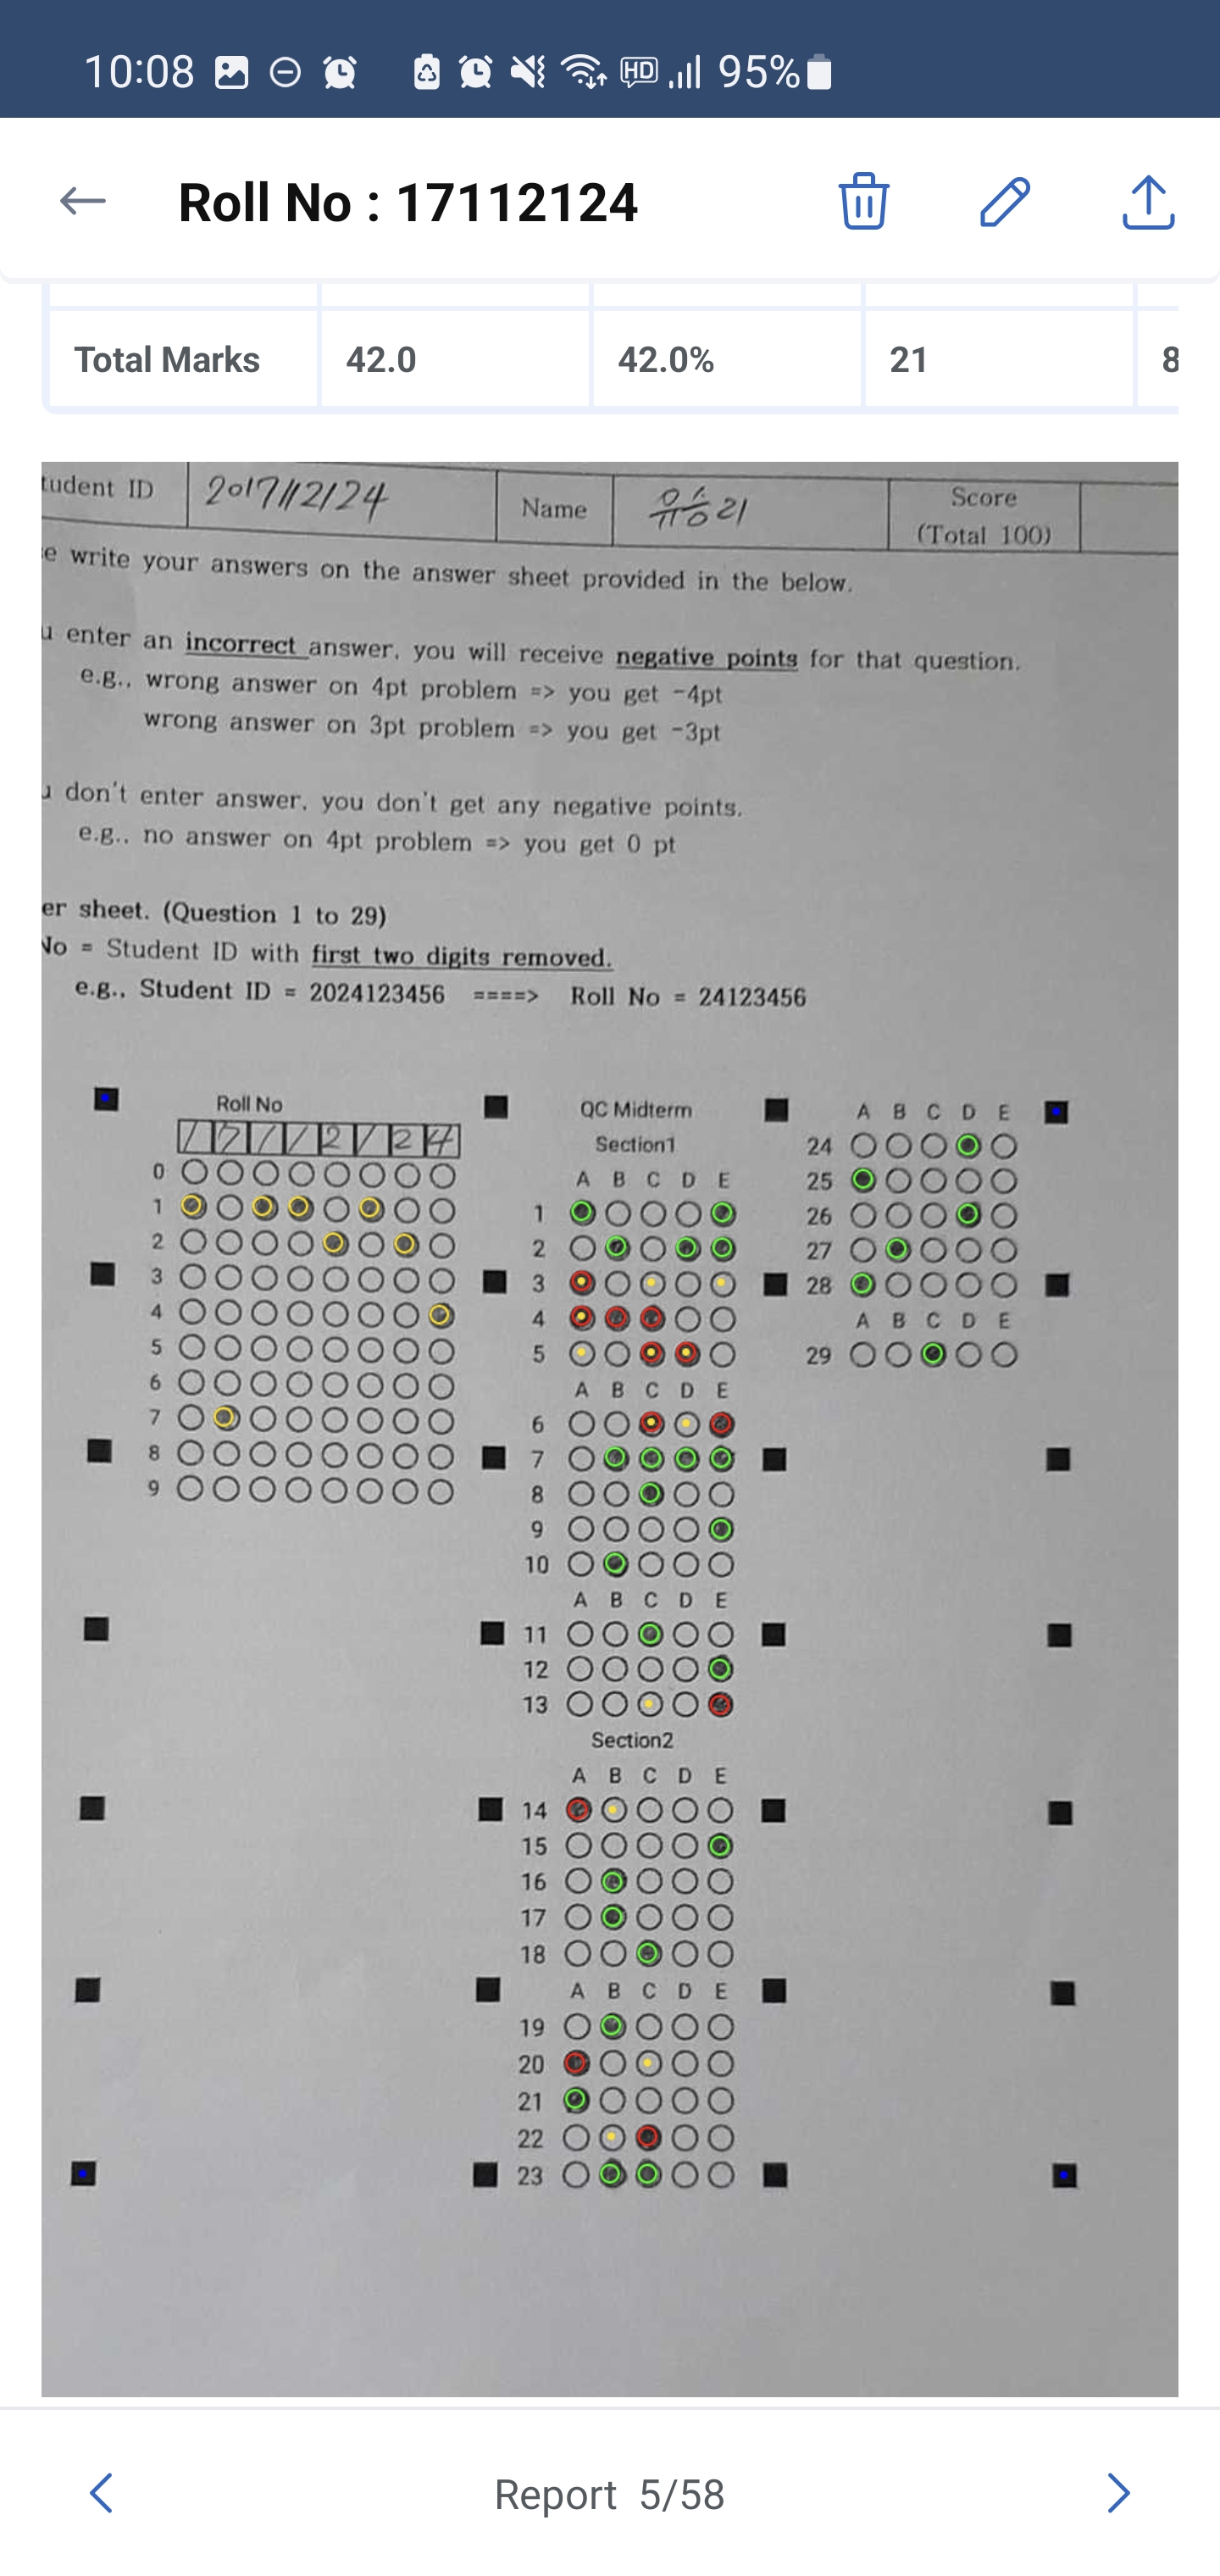 10:08 HD 95%
Roll No : 17112124
Total Marks 42.0 42.0% 21 8
tudent ID 2017112124 Name Score
(Total 100)
e write your answers on the answer sheet provided in the below.
u enter an incorrect answer, you will receive negative points for that question.
e.g., wrong answer on 4pt problem => you get -4pt
wrong answer on 3pt problem => you get -3pt
u don't enter answer, you don't get any negative points.
e.g., no answer on 4pt problem => you get 0 pt
er sheet. (Question 1 to 29)
No = Student ID with first two digits removed.
e.g., Student ID = 2024123456 ====> Roll No = 24123456
Roll No
1 7 1 1 2 1 2 4
0
1
2
3
4
5
6
7
8
9
QC Midterm
Section1
A B C D E
1
2
3
4
5
A B C D E
6
7
8
9
10
A B C D E
11
12
13
Section2
A B C D E
14
15
16
17
18
A B C D E
19
20
21
22
23
A B C D E
24
25
26
27
28
A B C D E
29
Report 5/58